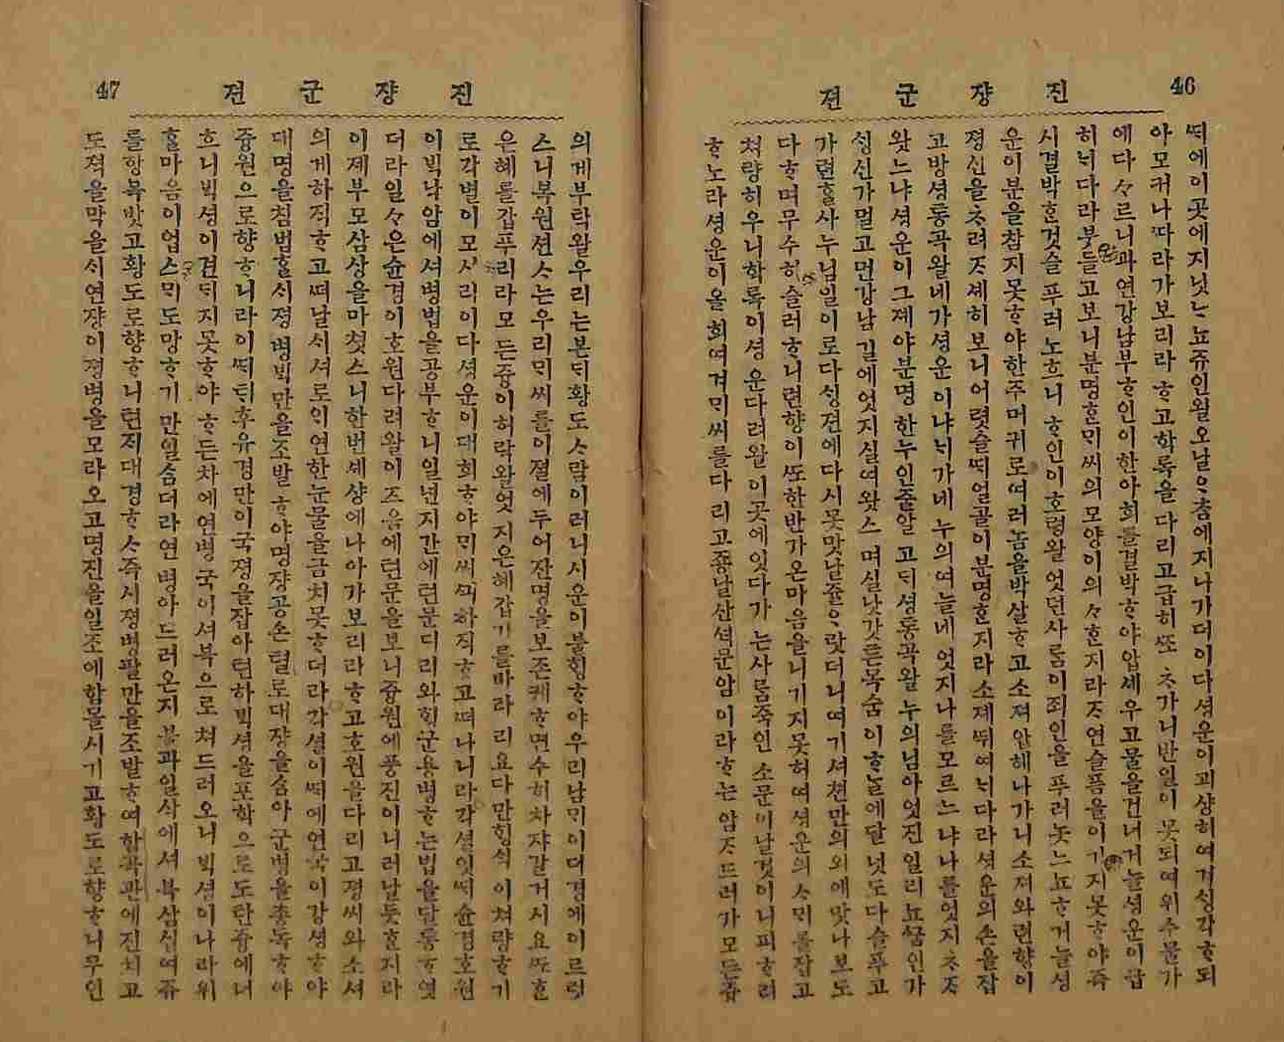 진쟝군젼 46
ᄯᅢ에이곳에지닛ᄂᆞ뇨쥬인왈오날ᄋᆞᄎᆞᆷ에지나가더이다셩운이괴샹히여겨ᄉᆡᆼ각ᄒᆞ되
아모커나ᄯᅡ라가보리라ᄒᆞ고학록을다리고급히ᄯᅩᄎᆞ가니반일이못되여위수물가
에다ᄃᆞ르니과연강남부ᄒᆞ인이한아희를결박ᄒᆞ야압셰우고물을건너거늘셩운이급
히ᄂᆡ다라붓들고보니분명ᄒᆞᆫᄆᆡ씨의모양이의ᄉᆞᄒᆞᆫ지라ᄌᆞ연슬픔을이기지못ᄒᆞ야즉
시결박ᄒᆞᆫ것슬푸러노흐니ᄒᆞ인이호령왈엇던사ᄅᆞᆷ이죄인을푸러놋ᄂᆞ뇨ᄒᆞ거늘셩
운이분을참지못ᄒᆞ야한주머귀로여러놈을박살ᄒᆞ고소져압헤나가니소져와련향이
졍신을ᄎᆞ려ᄌᆞ셰히보니어렷슬ᄯᅢ얼골이분명ᄒᆞᆫ지라소졔ᄯᅱ여ᄂᆡ다라셩운의손을잡
고방셩통곡왈네가셩운이냐ᄂᆡ가네누의여늘네엇지나를모르ᄂᆞ냐나를엇지ᄎᆞᄌᆞ
왓ᄂᆞ냐셩운이그졔야분명한누인줄알고ᄃᆡ셩통곡왈누의님아엇진일리뇨ᄭᅮᆷ인가
ᄉᆡᆼ신가멀고먼강남길에엇지실여왓스며실낫갓튼목숨이ᄒᆞ늘에달넛도다슬푸고
가련ᄒᆞᆯ사누님일이로다ᄉᆡᆼ젼에다시못맛날쥴ᄋᆞ랏더니여기셔쳔만의외에맛나보도
다ᄒᆞ며무수히슬러ᄒᆞ니련향이ᄯᅩ한반가온마음을니기지못허여셩운의ᄉᆞᄆᆡ를잡고
쳐량히우니학록이셩운다려왈이곳에잇다가는사ᄅᆞᆷ죽인소문이날것이니피ᄒᆞ리
ᄒᆞ노라셩운이올희여겨ᄆᆡ씨를다리고죵날산셕문암이라ᄒᆞ는암ᄌᆞ드러가모든즁
진쟝군젼 47
의게부탁왈우리는본ᄃᆡ황도ᄉᆞ람이러니시운이불ᄒᆡᆼᄒᆞ야우리남ᄆᆡ이디경에이르럿
스니복원션ᄉᆞ는우리ᄆᆡ씨를이졀에두어잔명을보존케ᄒᆞ면수히차쟈갈거시요ᄯᅩᄒᆞᆫ
은혜를갑푸리라모든즁이허락왈엇지은혜갑기를바라리요다만ᄒᆡᆼᄉᆡᆨ이쳐량ᄒᆞ기
로각별이모시리이다셩운이대희ᄒᆞ야ᄆᆡ씨ᄭᅴ하직ᄒᆞ고ᄯᅥ나니라각셜잇ᄯᅢ슌경호원
이ᄇᆡᆨ낙암에셔병법을공부ᄒᆞ니일년지간에텬문디리와ᄒᆡᆼ군용병ᄒᆞ는법을달통ᄒᆞ엿
더라일일은슌경이호원다려왈이즈음에텬문을보니즁원에풍진이니러날듯ᄒᆞᆫ지라
이졔부모삼상을마쳣스니한번셰샹에나아가보리라ᄒᆞ고호원을다리고졍씨와소셔
의게하직ᄒᆞ고ᄯᅥ날시셔로ᄋᆡ연한눈물을금치못ᄒᆞ더라각셜이ᄯᅢ에연국이강셩ᄒᆞ야
대명을침범ᄒᆞᆯᄉᆡ졍병ᄇᆡᆨ만을조발ᄒᆞ야명쟝공손텰로대쟝을삼아군병을총독ᄒᆞ야
즁원으로향ᄒᆞ니라이ᄯᅢᄃᆡ후유경만이국졍을잡아텬하ᄇᆡᆨ셩을포학으로도탄즁에너
흐니ᄇᆡᆨ셩이견ᄃᆡ지못ᄒᆞ야ᄒᆞ든차에연병국이셔부으로쳐드러오니ᄇᆡᆨ셩이나라위
ᄒᆞᆯ마음이업스ᄆᆡ도망ᄒᆞ기만일숨더라연병아드러온지불과일삭에셔북삼십여쥬
를항복밧고황도로향ᄒᆞ니텬ᄌᆡ대경ᄒᆞᄉᆞ즉시졍병팔만을조발ᄒᆞ여함곡관에진치고
도젹을막을ᄉᆡ연쟝이졍병을모라오고명진을일조에함몰시기고황도로향ᄒᆞ니무인